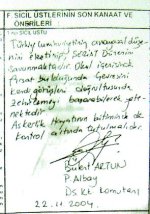 F. SİCİL ÜSTLERİNİN SON KANAAT VE
ÖNERİLERİ
1 nci SİCİL ÜSTÜ
Türkiye Cumhuriyetinin anayasal düze-
nini eleştirip, Sezist Düzenin
savunmaktadır. Okul içerisinde
fırsat bulduğunda çevresini
kendi görüşleri doğrultusunda
zehirlemeyi başarabilecek yete-
nektedir.
Askerlik Hayatının bitiminde de
kontrol altında tutulmalıdır.
ARTUN
P. Albay
Ds. Kt. Komutanı
22.11.2004.